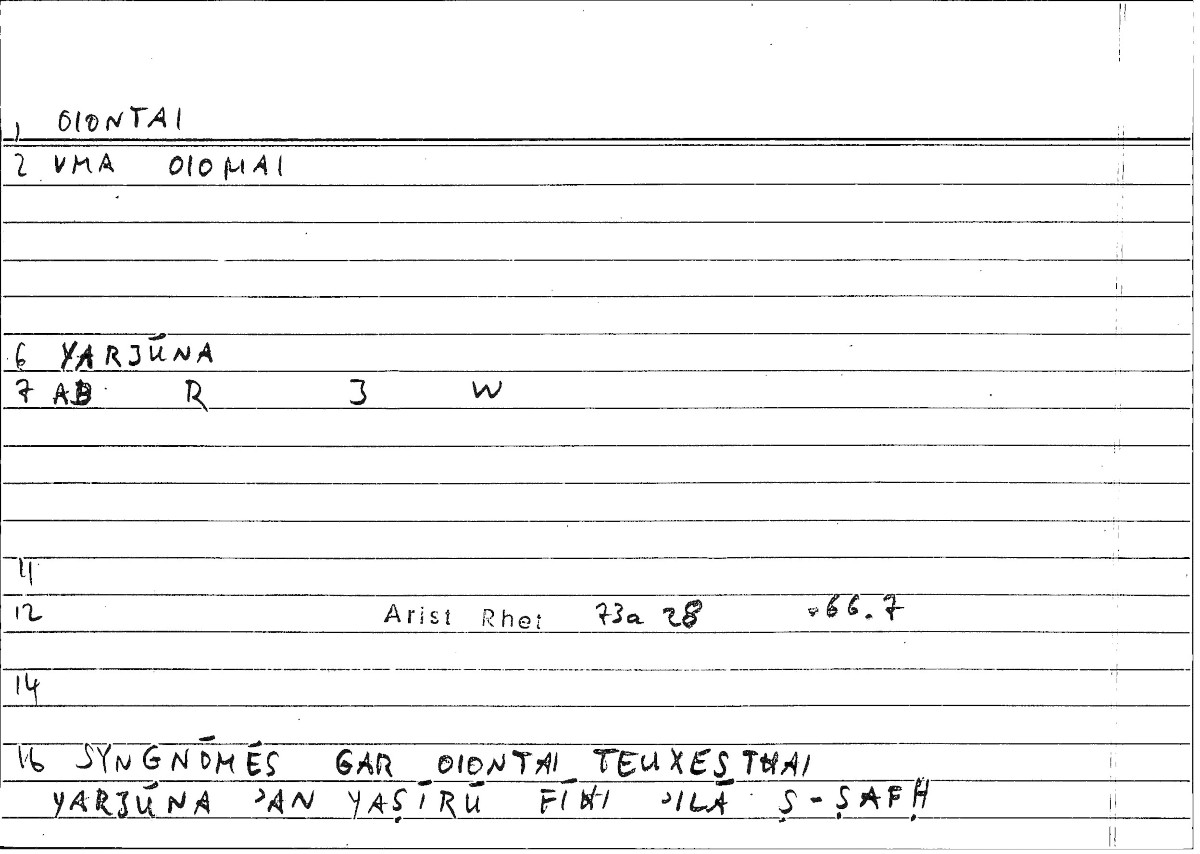 1 OIONTAI
2 VMA OIOMAI
6 YARJŪNA
7 AB R J W
11
12 Arist Rhet 73a 28 .66.7
14
16 SYNGNŌMĒS GAR OIONTAI TEUXESTHAI
YARJŪNA ʾAN YAṢĪRŪ FĪHI ʾILĀ Ṣ-ṢAFḤ